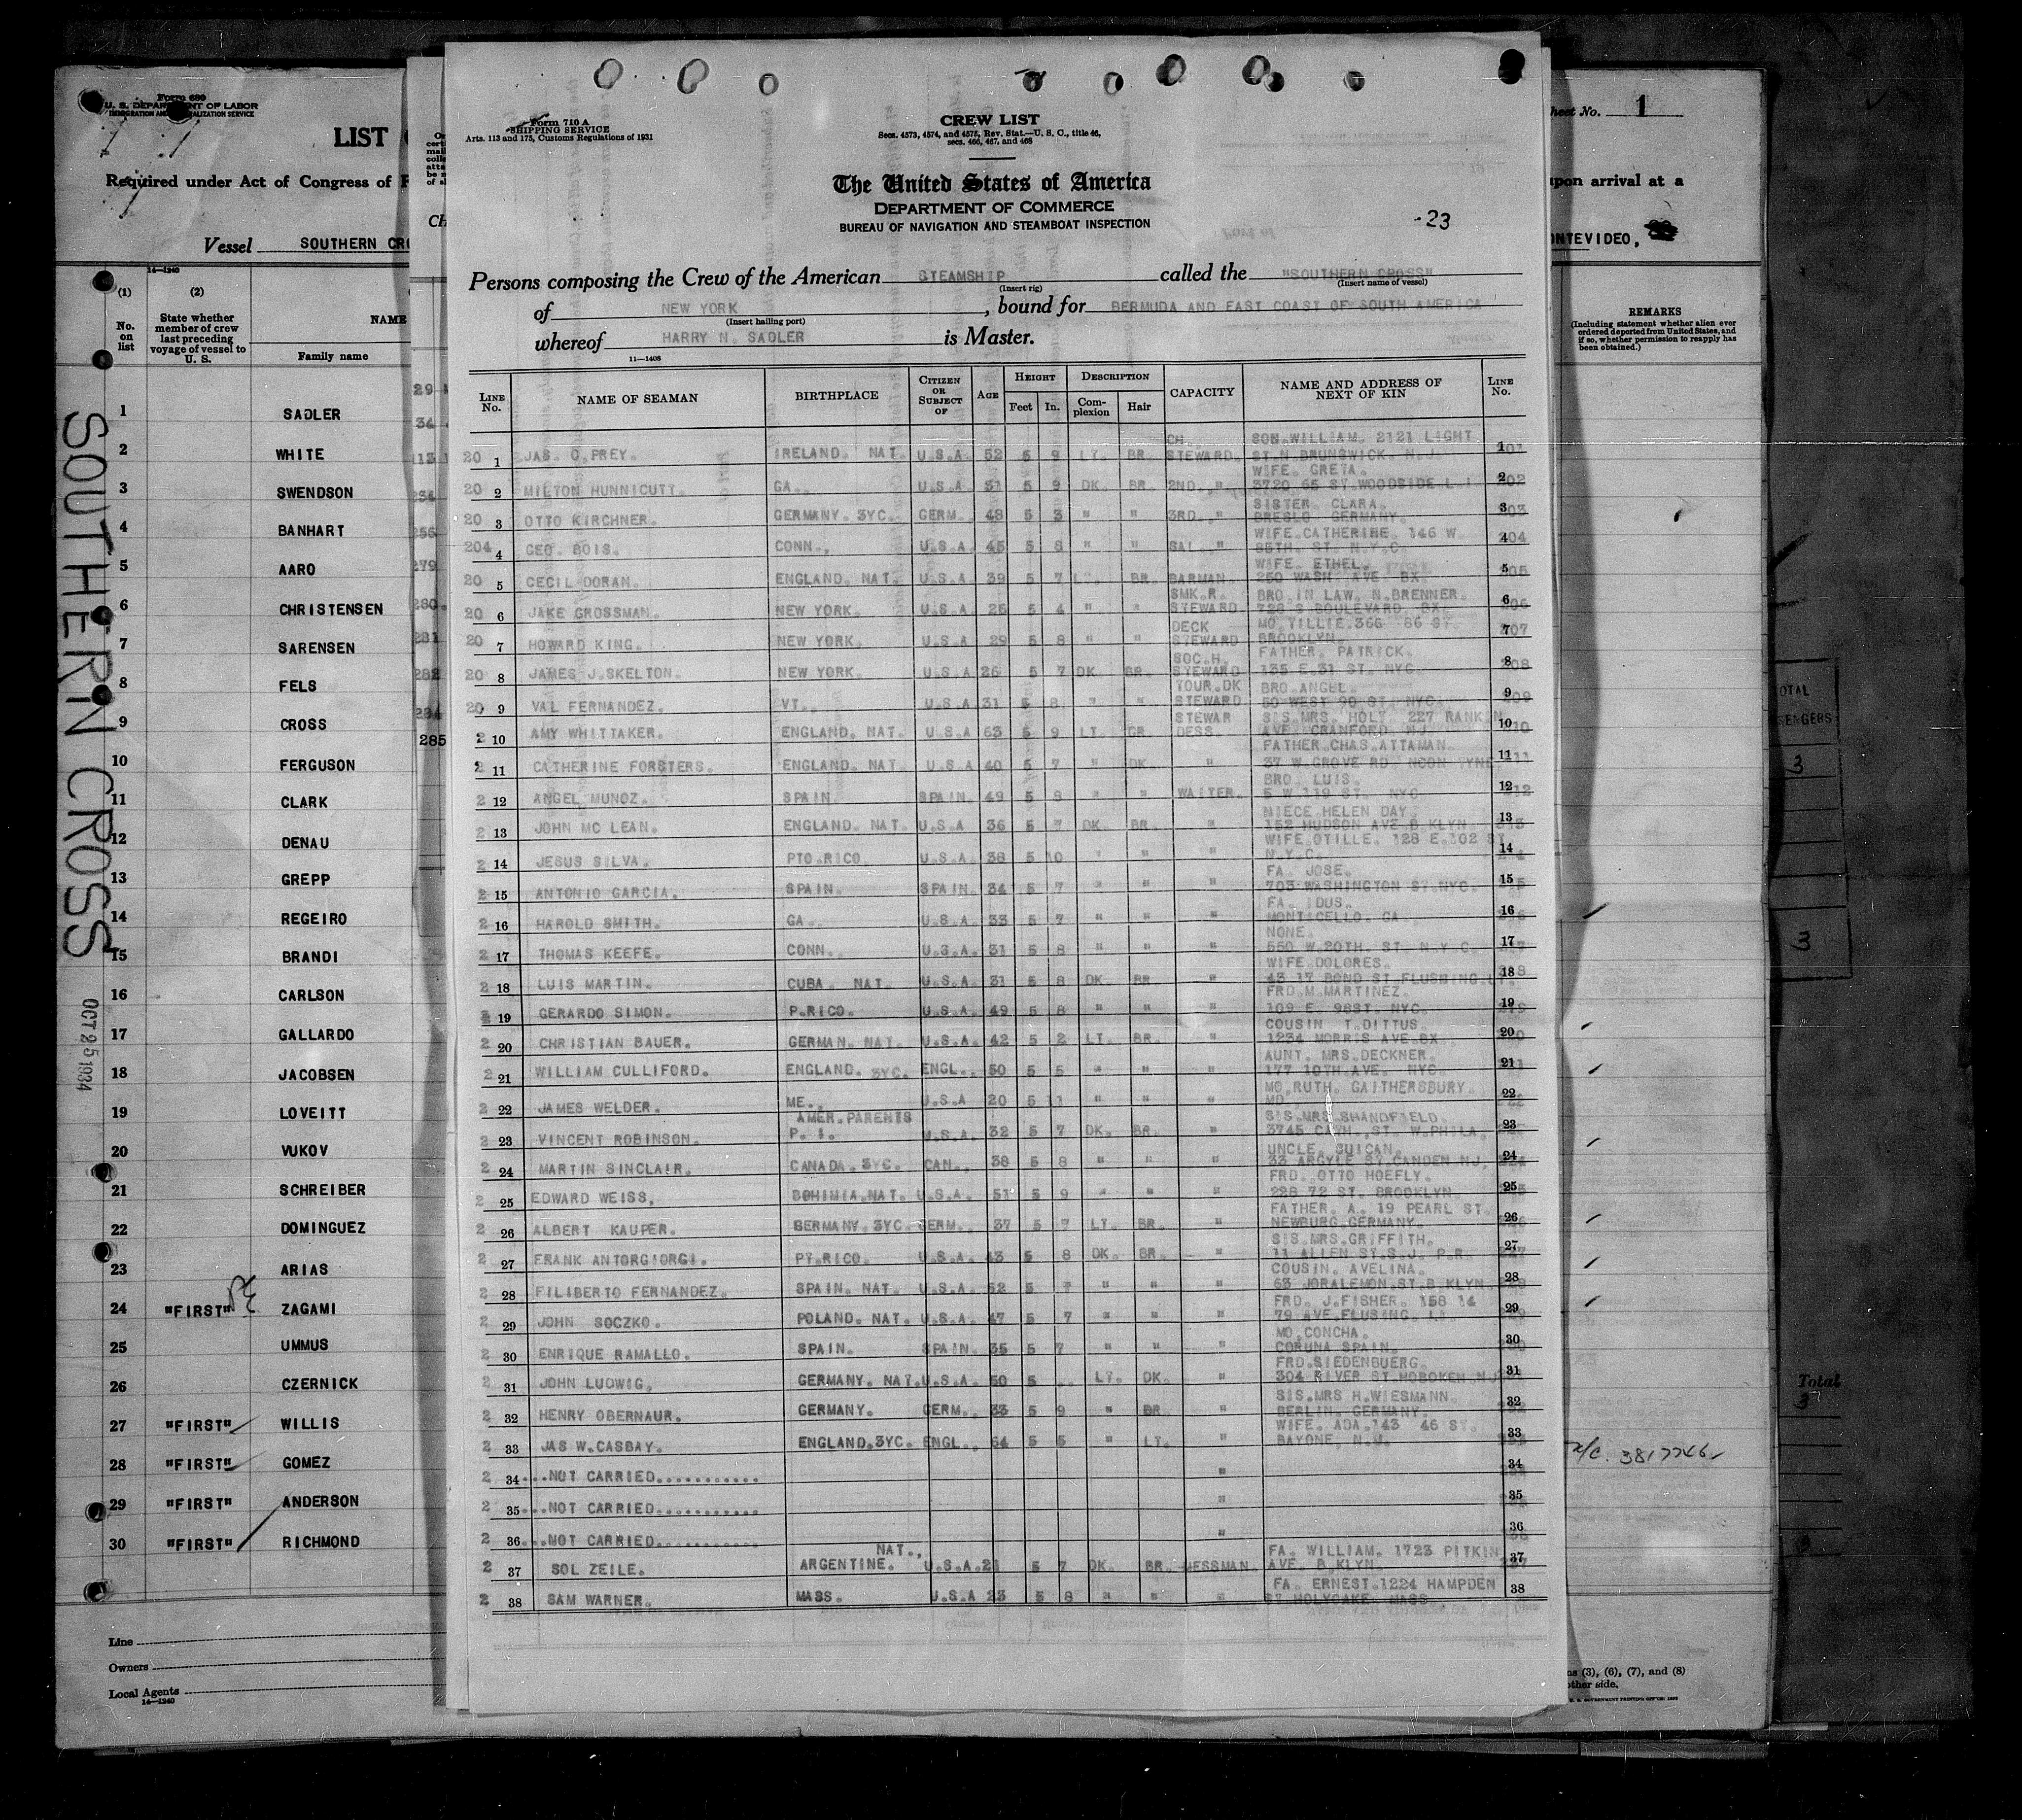 Form 680
U. S. DEPARTMENT OF LABOR
IMMIGRATION AND NATURALIZATION SERVICE
LIST
Required under Act of Congress of
Vessel SOUTHERN CRO
14—1240
(1)
(2)
No. on list
State whether member of crew last preceding voyage of vessel to U. S.
NAME
Family name
1 SADLER
2 WHITE
3 SWENDSON
4 BANHART
5 AARO
6 CHRISTENSEN
7 SARENSEN
8 FELS
9 CROSS
10 FERGUSON
11 CLARK
12 DENAU
13 GREPP
14 REGEIRO
15 BRANDI
16 CARLSON
17 GALLARDO
18 JACOBSEN
19 LOVEITT
20 VUKOV
21 SCHREIBER
22 DOMINGUEZ
23 ARIAS
24 "FIRST" ZAGAMI
25 UMMUS
26 CZERNICK
27 "FIRST" WILLIS
28 "FIRST" GOMEZ
29 "FIRST" ANDERSON
30 "FIRST" RICHMOND
Line
Owners
Local Agents
14—1240
SOUTHERN CROSS
OCT 25 1934
279
280
281
282
284
285
Form 710 A
SHIPPING SERVICE
Arts. 113 and 175, Customs Regulations of 1931
CREW LIST
Secs. 4573, 4574, and 4575, Rev. Stat.—U. S. C., title 46,
secs. 466, 467, and 468
The United States of America
DEPARTMENT OF COMMERCE
BUREAU OF NAVIGATION AND STEAMBOAT INSPECTION
-23
Persons composing the Crew of the American STEAMSHIP called the "SOUTHERN CROSS"
(Insert rig) (Insert name of vessel)
of NEW YORK, bound for BERMUDA AND EAST COAST OF SOUTH AMERICA
(Insert hailing port)
whereof HARRY N. SADLER is Master.
11—1406
LINE No. NAME OF SEAMAN BIRTHPLACE CITIZEN OR SUBJECT OF AGE HEIGHT Feet In. DESCRIPTION Complexion Hair CAPACITY NAME AND ADDRESS OF NEXT OF KIN LINE No.
1 JAS. O.PREY. IRELAND. NAT. U.S.A. 52 5 9 LT. BR. CH. STEWARD. SON.WILLIAM. 2121 LIGHT ST.N.BRUNSWICK. N.J. 1
2 MILTON HUNNICUTT. GA. U.S.A. 31 5 9 DK. BR. 2ND. " WIFE. GRETA. 3720 65 ST.WOODSIDE L.I. 2
3 OTTO KIRCHNER. GERMANY. 3YC. GERM. 48 5 3 " " 3RD. " SISTER. CLARA. BRESLO GERMANY. 3
4 GEO. BOIS. CONN. U.S.A. 45 5 8 " " SAL. " WIFE.CATHERINE. 146 W. 85TH. ST. N.Y.C. 4
5 CECIL DORAN. ENGLAND. NAT. U.S.A. 39 5 7 L. BR. BARMAN. WIFE. ETHEL. 250 WASH. AVE. BX. 5
6 JAKE GROSSMAN. NEW YORK. U.S.A. 26 5 4 " " SMK.R. STEWARD BRO.IN LAW. N.BRENNER. 728 S BOULEVARD. BX. 6
7 HOWARD KING. NEW YORK. U.S.A 29 5 8 " " DECK STEWARD MO.TILLIE.366 86 ST. BROOKLYN. 7
8 JAMES J.SKELTON. NEW YORK. U.S.A 26 5 7 DK. BR. SOC.H. STEWARD FATHER. PATRICK. 135 E.31 ST. NYC. 8
9 VAL FERNANDEZ. VT. U.S.A 31 5 8 " " TOUR.DK STEWARD BRO.ANGEL. 50 WEST 90 ST. NYC. 9
10 AMY WHITTAKER. ENGLAND. NAT. U.S.A 63 5 9 LT. GR. STEWAR DESS. SIS.MRS. HOLT. 227 RANKIN AVE. CRANFORD NJ. 10
11 CATHERINE FORSTERS. ENGLAND. NAT. U.S.A 40 5 7 " DK. " FATHER.CHAS.ATTAMAN. 37 W.GROVE RD. NCON TYNE 11
12 ANGEL MUNOZ. SPAIN. SPAIN. 49 5 8 " " WAITER. BRO. LUIS. 5 W 119 ST. NYC 12
13 JOHN MC LEAN. ENGLAND. NAT. U.S.A 36 5 7 DK. BR. " NIECE.HELEN DAY. 152 HUDSON AVE B.KLYN. 13
14 JESUS SILVA. PTO.RICO U.S.A. 38 5 10 " " " WIFE.OTILLE. 128 E.102 ST. N.Y.C. 14
15 ANTONIO GARCIA. SPAIN. SPAIN. 34 5 7 " " " FA. JOSE. 703 WASHINGTON ST.NYC. 15
16 HAROLD SMITH. GA. U.S.A. 33 5 7 " " " FA. IDUS. MONTICELLO. GA. 16
17 THOMAS KEEFE. CONN. U.S.A. 31 5 8 " " " NONE. 550 W.20TH. ST. N.Y.C. 17
18 LUIS MARTIN. CUBA. NAT. U.S.A. 31 5 8 DK. BR. " WIFE DOLORES. 43 17 BOND ST.FLUSHING 18
19 GERARDO SIMON. P.RICO. U.S.A. 49 5 8 " " " FRD.M.MARTINEZ. 109 E. 98ST. NYC. 19
20 CHRISTIAN BAUER. GERMAN. NAT. U.S.A. 42 5 2 LT. BR. " COUSIN T.DITTUS. 1234 MORRIS AVE.BX. 20
21 WILLIAM CULLIFORD. ENGLAND. 3YC. ENGL. 50 5 5 " " " AUNT. MRS.DECKNER. 177 10TH.AVE. NYC. 21
22 JAMES WELDER. ME. U.S.A 20 5 11 " " " MO.RUTH. GAITHERSBURY. MD. 22
23 VINCENT ROBINSON. AMER.PARENTS P. I. U.S.A. 32 5 7 DK. BR. " SIS.MRS.SHANDFIELD. 3745 ST. W.PHILA. 23
24 MARTIN SINCLAIR. CANADA. 3YC. CAN. 38 5 8 " " " UNCLE. 33 ARGYLE ST.CAMDEN NJ. 24
25 EDWARD WEISS. BOHIMIA.NAT. U.S.A. 51 5 9 " " " FRD. OTTO HOEFLY. 228 72 ST. BROOKLYN. 25
26 ALBERT KAUPER. GERMANY. 3YC. GERM. 37 5 7 LT. BR. " FATHER. A. 19 PEARL ST. NEWBURG.GERMANY. 26
27 FRANK ANTORGIORGI. PT.RICO. U.S.A. 43 5 8 DK. BR. " SIS.MRS.GRIFFITH. 11 ALLEN ST.S.J. P.R. 27
28 FILIBERTO FERNANDEZ. SPAIN. NAT. U.S.A. 52 5 7 " " " COUSIN. AVELINA. 63 JORALEMON.ST.B KLYN. 28
29 JOHN SOCZKO. POLAND. NAT. U.S.A. 47 5 7 " " " FRD. J.FISHER. 158 14 79 AVE.FLUSING. LI. 29
30 ENRIQUE RAMALLO. SPAIN. SPAIN. 35 5 7 " " " MO.CONCHA. CORUNA SPAIN. 30
31 JOHN LUDWIG. GERMANY. NAT. U.S.A. 50 5 LT. DK. " FRD.SIEDENBUERG. 304 RIVER ST.HOBOKEN.NJ 31
32 HENRY OBERNAUR. GERMANY. GERM. 33 5 9 " BR. " SIS.MRS H.WIESMANN. BERLIN. GERMANY. 32
33 JAS W.CASBAY. ENGLAND.3YC. ENGL. 64 5 5 " LT. " WIFE. ADA.143 46 ST. BAYONE. 33
34 ...NOT CARRIED........... " 34
35 ...NOT CARRIED........... " 35
36 ...NOT CARRIED........... " 36
37 SOL ZEILE. NAT., ARGENTINE. U.S.A.21 5 7 DK. BR. MESSMAN. FA. WILLIAM. 1723 PITKIN AVE. B.KLYN. 37
38 SAM WARNER. MASS. U.S.A 23 5 8 " " " FA. ERNEST.1224 HAMPDEN ST HOLYOAKE MASS 38
Sheet No. 1
upon arrival at a
ONTEVIDEO,
REMARKS
(Including statement whether alien ever ordered deported from United States, and if so, whether permission to reapply has been obtained.)
OTAL
SENGERS
3
3
Total
3
(3), (6), (7), and (8)
other side.